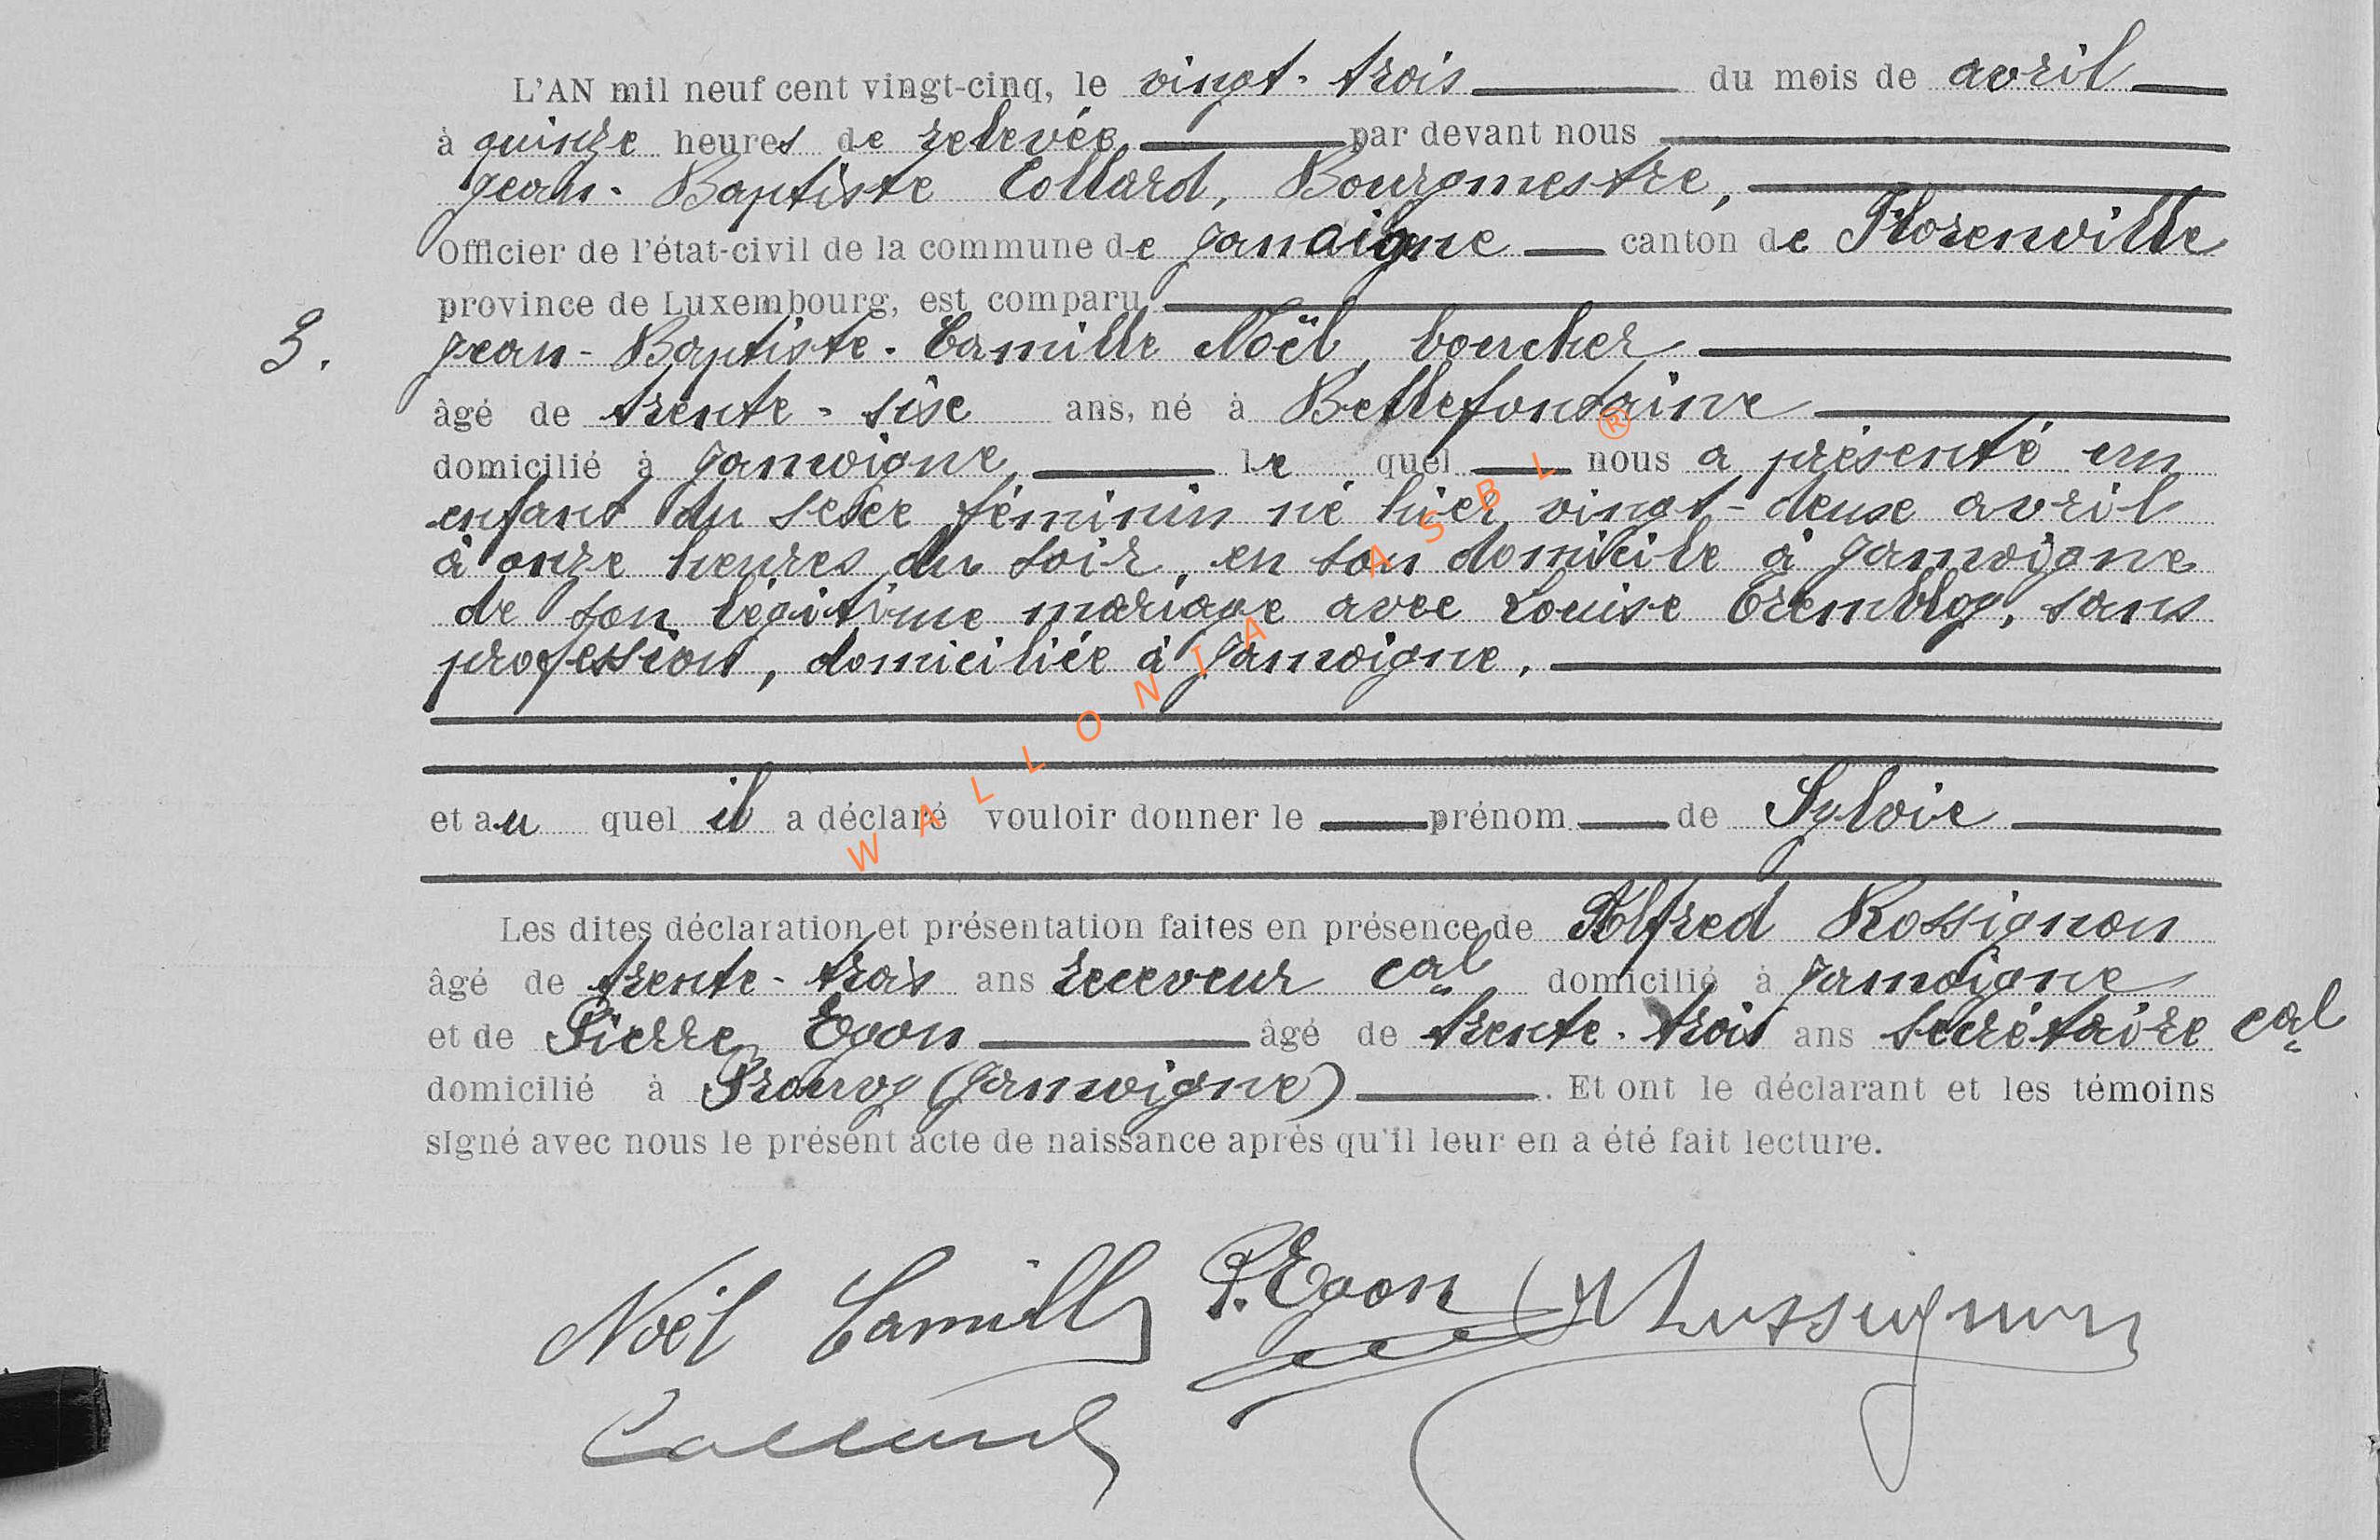 L'AN mil neuf cent vingt-cinq, le vingt-trois du mois de avril
à quinze heures de relevée par devant nous
Jean-Baptiste Collard, Bourgmestre,
Officier de l'état-civil de la commune de Jamoigne canton de Florenville
province de Luxembourg, est comparu
3. Jean-Baptiste-Camille Noël, boucher
âgé de trente-six ans, né à Bellefontaine
domicilié à Jamoigne, le quel nous a présenté un
enfant du sexe féminin né hier vingt-deux avril
à onze heures du soir, en son domicile à Jamoigne
de son légitime mariage avec Louise Trembloy, sans
profession, domiciliée à Jamoigne.
et au quel il a déclaré vouloir donner le prénom de Sylvie
Les dites déclaration et présentation faites en présence de Alfred Rossignon
âgé de trente-trois ans receveur cal domicilié à Jamoigne
et de Pierre Egon âgé de trente-trois ans secrétaire cal
domicilié à Prouvy (Jamoigne). Et ont le déclarant et les témoins
signé avec nous le présent acte de naissance après qu'il leur en a été fait lecture.
Noël Camille P. Egon A Rossignon
Collard
WALLONIA ASBL ®